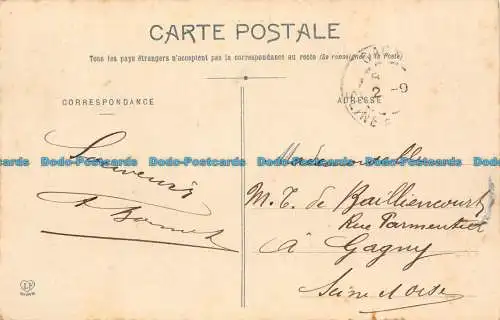 CARTE POSTALE
Tous les pays étrangers n'acceptent pas la correspondance au recto (Se renseigner à la Poste)
CORRESPONDANCE
ADRESSE
2 -9
Souvenir
Mademoiselle
M. T. de Bailliencourt
Rue Parmentier
à Gagny
Seine et Oise
Dodo-Postcards Dodo-Postcards Dodo-Postcards Dodo-Postcards Dodo-Postcards Dodo-Postcards